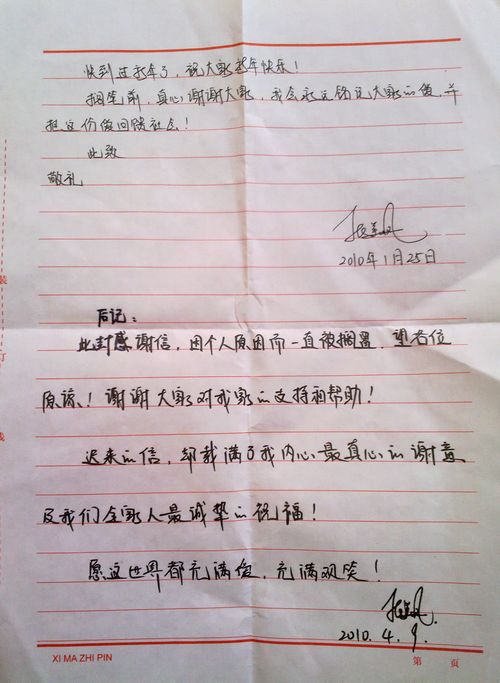 快到过新年了，祝大家新年快乐！
搁笔前，真心谢谢大家，我会永远铭记大家的爱，并
把这份爱回馈社会！
此致
敬礼
2010年1月25日
后记：
此封感谢信，因个人原因而一直被搁置，望各位
原谅！谢谢大家对我家的支持和帮助！
迟来的信，却载满了我内心最真心的谢意
及我们全家人最诚挚的祝福！
愿这世界都充满爱，充满欢笑！
2010.4.9.
XI MA ZHI PIN
第 页
装
订
线